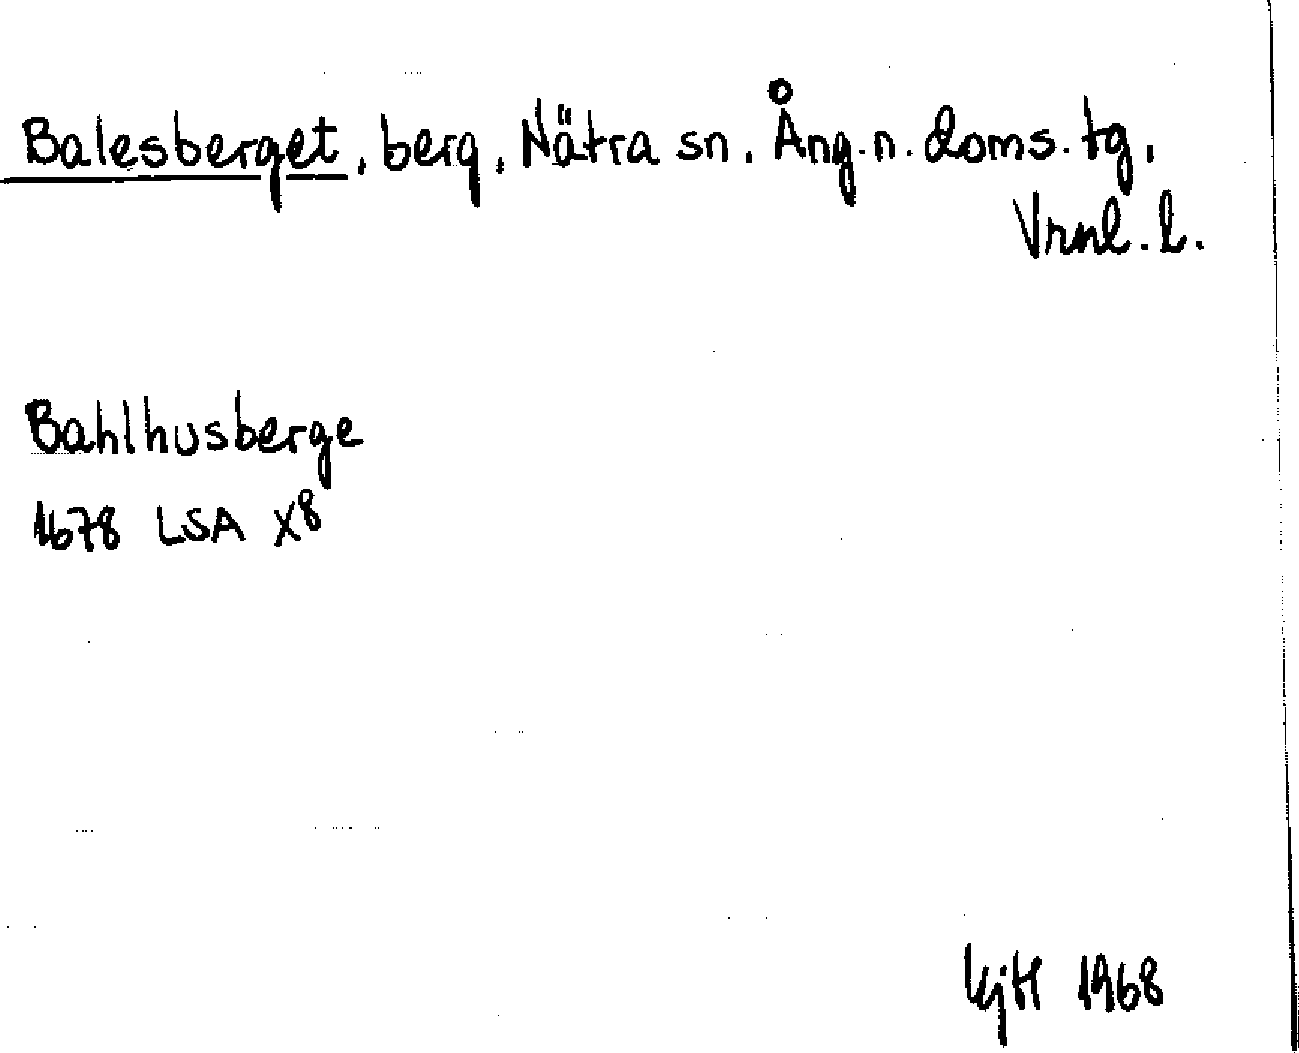 Balesberget, berg, Nätra sn. Ång.n. doms. tg,
Vrnl. l.
Bahlhusberge
1678 LSA X8
KjH 1968